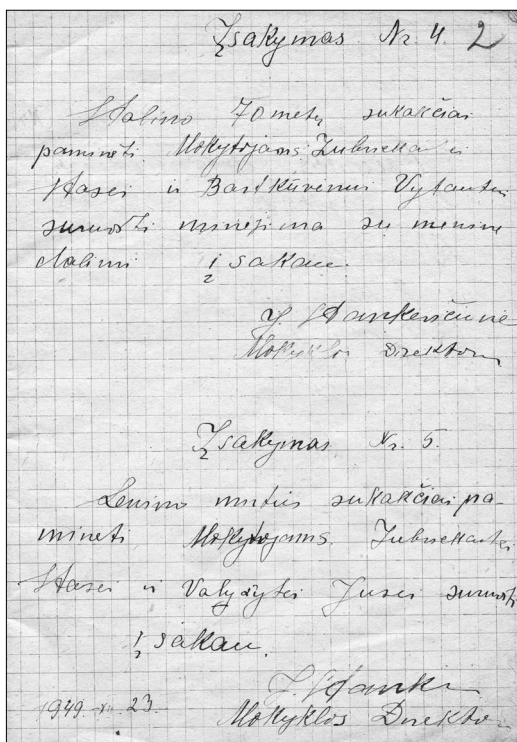 Įsakymas Nr. 4. 2
Stalino 70 metų sukakčiai
paminėti Mokytojams Zubrickaitei
Stasei ir Bartkūvienui Vytautui
suruošti minėjimą su menine
dalimi įsakau.
J. Stankevičiūnė
Mokyklos Direktorė
Įsakymas Nr. 5.
Lenino mirties sukakčiai pa-
minėti Mokytojams Zubrickaitei
Stasei ir Valyžytei Juzei suruošti
įsakau.
1949 XII 23. J. Stanke
Mokyklos Direktorė